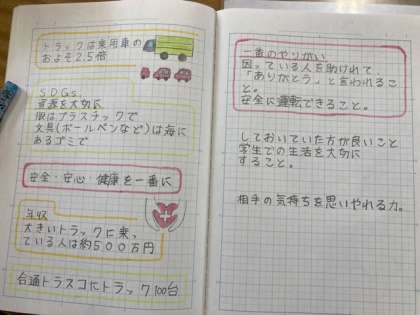 トラックは乗用車の
およそ2.5倍
SDGs.
資源を大切に
服はプラスチックで
文具(ボールペンなど)は海に
あるゴミで
安全・安心・健康を一番に
年収
大きいトラックに乗っ
ている人は約500万円
合通トラスコにトラック100台
一番のやりがい
困っている人を助けれて
「ありがとう」と言われるこ
と。
安全に運転できること。
しておいていた方が良いこと
学生での生活を大切に
すること。
相手の気持ちを思いやれる力。